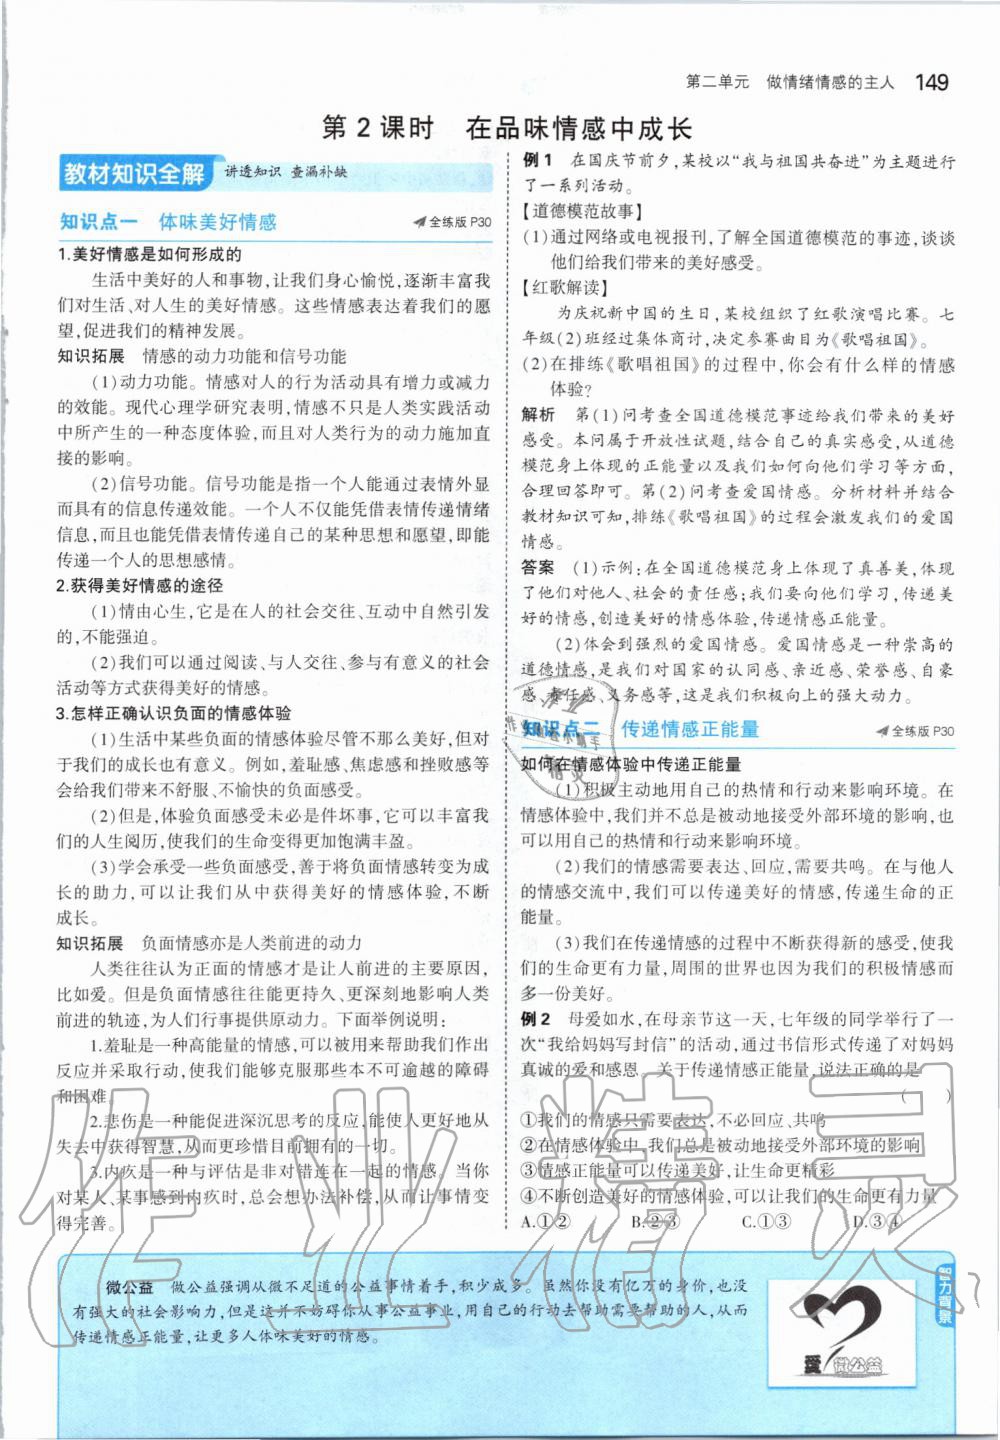 第二单元　做情绪情感的主人　149
第 2 课时　在品味情感中成长
教材知识全解　讲透知识　查漏补缺
知识点一　体味美好情感　全练版 P30
1.美好情感是如何形成的
生活中美好的人和事物,让我们身心愉悦,逐渐丰富我
们对生活、对人生的美好情感。这些情感表达着我们的愿
望,促进我们的精神发展。
知识拓展　情感的动力功能和信号功能
(1)动力功能。情感对人的行为活动具有增力或减力
的效能。现代心理学研究表明,情感不只是人类实践活动
中所产生的一种态度体验,而且对人类行为的动力施加直
接的影响。
(2)信号功能。信号功能是指一个人能通过表情外显
而具有的信息传递效能。一个人不仅能凭借表情传递情绪
信息,而且也能凭借表情传递自己的某种思想和愿望,即能
传递一个人的思想感情。
2.获得美好情感的途径
(1)情由心生,它是在人的社会交往、互动中自然引发
的,不能强迫。
(2)我们可以通过阅读、与人交往、参与有意义的社会
活动等方式获得美好的情感。
3.怎样正确认识负面的情感体验
(1)生活中某些负面的情感体验尽管不那么美好,但对
于我们的成长也有意义。例如,羞耻感、焦虑感和挫败感等
会给我们带来不舒服、不愉快的负面感受。
(2)但是,体验负面感受未必是件坏事,它可以丰富我
们的人生阅历,使我们的生命变得更加饱满丰盈。
(3)学会承受一些负面感受,善于将负面情感转变为成
长的助力,可以让我们从中获得美好的情感体验,不断
成长。
知识拓展　负面情感亦是人类前进的动力
人类往往认为正面的情感才是让人前进的主要原因,
比如爱。但是负面情感往往能更持久、更深刻地影响人类
前进的轨迹,为人们行事提供原动力。下面举例说明:
1.羞耻是一种高能量的情感,可以被用来帮助我们作出
反应并采取行动,使我们能够克服那些本不可逾越的障碍
和困难。
2.悲伤是一种能促进深沉思考的反应,能使人更好地从
失去中获得智慧,从而更珍惜目前拥有的一切。
3.内疚是一种与评估是非对错连在一起的情感。当你
对某人、某事感到内疚时,总会想办法补偿,从而让事情变
得完善。
例 1　在国庆节前夕,某校以“我与祖国共奋进”为主题进行
了一系列活动。
【道德模范故事】
(1)通过网络或电视报刊,了解全国道德模范的事迹,谈谈
他们给我们带来的美好感受。
【红歌解读】
为庆祝新中国的生日,某校组织了红歌演唱比赛。七
年级(2)班经过集体商讨,决定参赛曲目为《歌唱祖国》。
(2)在排练《歌唱祖国》的过程中,你会有什么样的情感
体验?
解析　第(1)问考查全国道德模范事迹给我们带来的美好
感受。本问属于开放性试题,结合自己的真实感受,从道德
模范身上体现的正能量以及我们如何向他们学习等方面,
合理回答即可。第(2)问考查爱国情感。分析材料并结合
教材知识可知,排练《歌唱祖国》的过程会激发我们的爱国
情感。
答案　(1)示例:在全国道德模范身上体现了真善美,体现
了他们对他人、社会的责任感;我们要向他们学习,传递美
好的情感,创造美好的情感体验,传递情感正能量。
(2)体会到强烈的爱国情感。爱国情感是一种崇高的
道德情感,是我们对国家的认同感、亲近感、荣誉感、自豪
感、责任感、义务感等,这是我们积极向上的强大动力。
知识点二　传递情感正能量　全练版 P30
如何在情感体验中传递正能量
(1)积极主动地用自己的热情和行动来影响环境。在
情感体验中,我们并不总是被动地接受外部环境的影响,也
可以用自己的热情和行动来影响环境。
(2)我们的情感需要表达、回应,需要共鸣。在与他人
的情感交流中,我们可以传递美好的情感,传递生命的正
能量。
(3)我们在传递情感的过程中不断获得新的感受,使我
们的生命更有力量,周围的世界也因为我们的积极情感而
多一份美好。
例 2　母爱如水,在母亲节这一天,七年级的同学举行了一
次“我给妈妈写封信”的活动,通过书信形式传递了对妈妈
真诚的爱和感恩。关于传递情感正能量,说法正确的是
(　　)
①我们的情感只需要表达,不必回应、共鸣
②在情感体验中,我们总是被动地接受外部环境的影响
③情感正能量可以传递美好,让生命更精彩
④不断创造美好的情感体验,可以让我们的生命更有力量
A.①②　B.②③　C.①③　D.③④
微公益　做公益强调从微不足道的公益事情着手,积少成多。虽然你没有亿万的身价,也没
有强大的社会影响力,但是这并不妨碍你从事公益事业,用自己的行动去帮助需要帮助的人,从而
传递情感正能量,让更多人体味美好的情感。
智力背景
爱 微公益
作业精灵